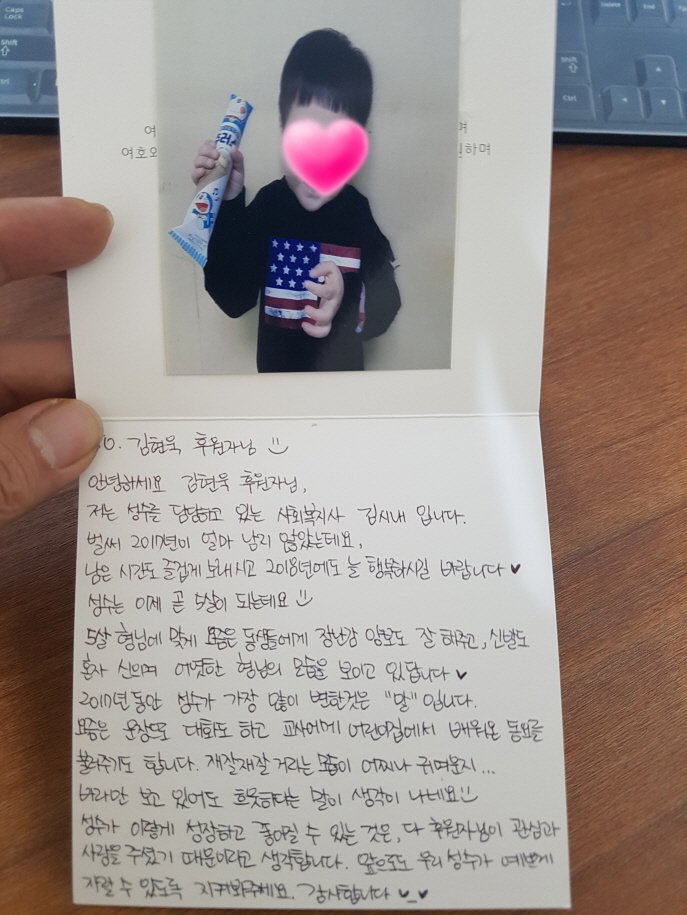 Caps Lock
Shift
Ctrl
Delete
End
Shift
Ctrl
여
며
여호와
하며
TO. 김현욱 후원자님
안녕하세요 김현욱 후원자님,
저는 성수를 담당하고 있는 사회복지사 김시내 입니다.
벌써 2017년이 얼마 남지 않았는데요,
남은 시간도 즐겁게 보내시고 2018년에도 늘 행복하시길 바랍니다 ♥
성수는 이제 곧 5살이 되는데요
5살 형님에 맞게 요즘은 동생들에게 장난감 양보도 잘 해주고, 신발도
혼자 신으며 어엿한 형님의 모습을 보이고 있답니다 ♥
2017년동안 성수가 가장 많이 변한것은 "말" 입니다.
요즘은 문장으로 대화도 하고 교사에게 어린이집에서 배워온 동요를
불러주기도 합니다. 재잘재잘 거리는 모습이 어찌나 귀여운지...
바라만 보고 있어도 흐뭇하다는 말이 생각이 나네요
성수가 이렇게 성장하고 좋아질 수 있는 것은, 다 후원자님이 관심과
사랑을 주셨기 때문이라고 생각합니다. 앞으로도 우리 성수가 예쁘게
자랄 수 있도록 지켜봐주세요. 감사합니다